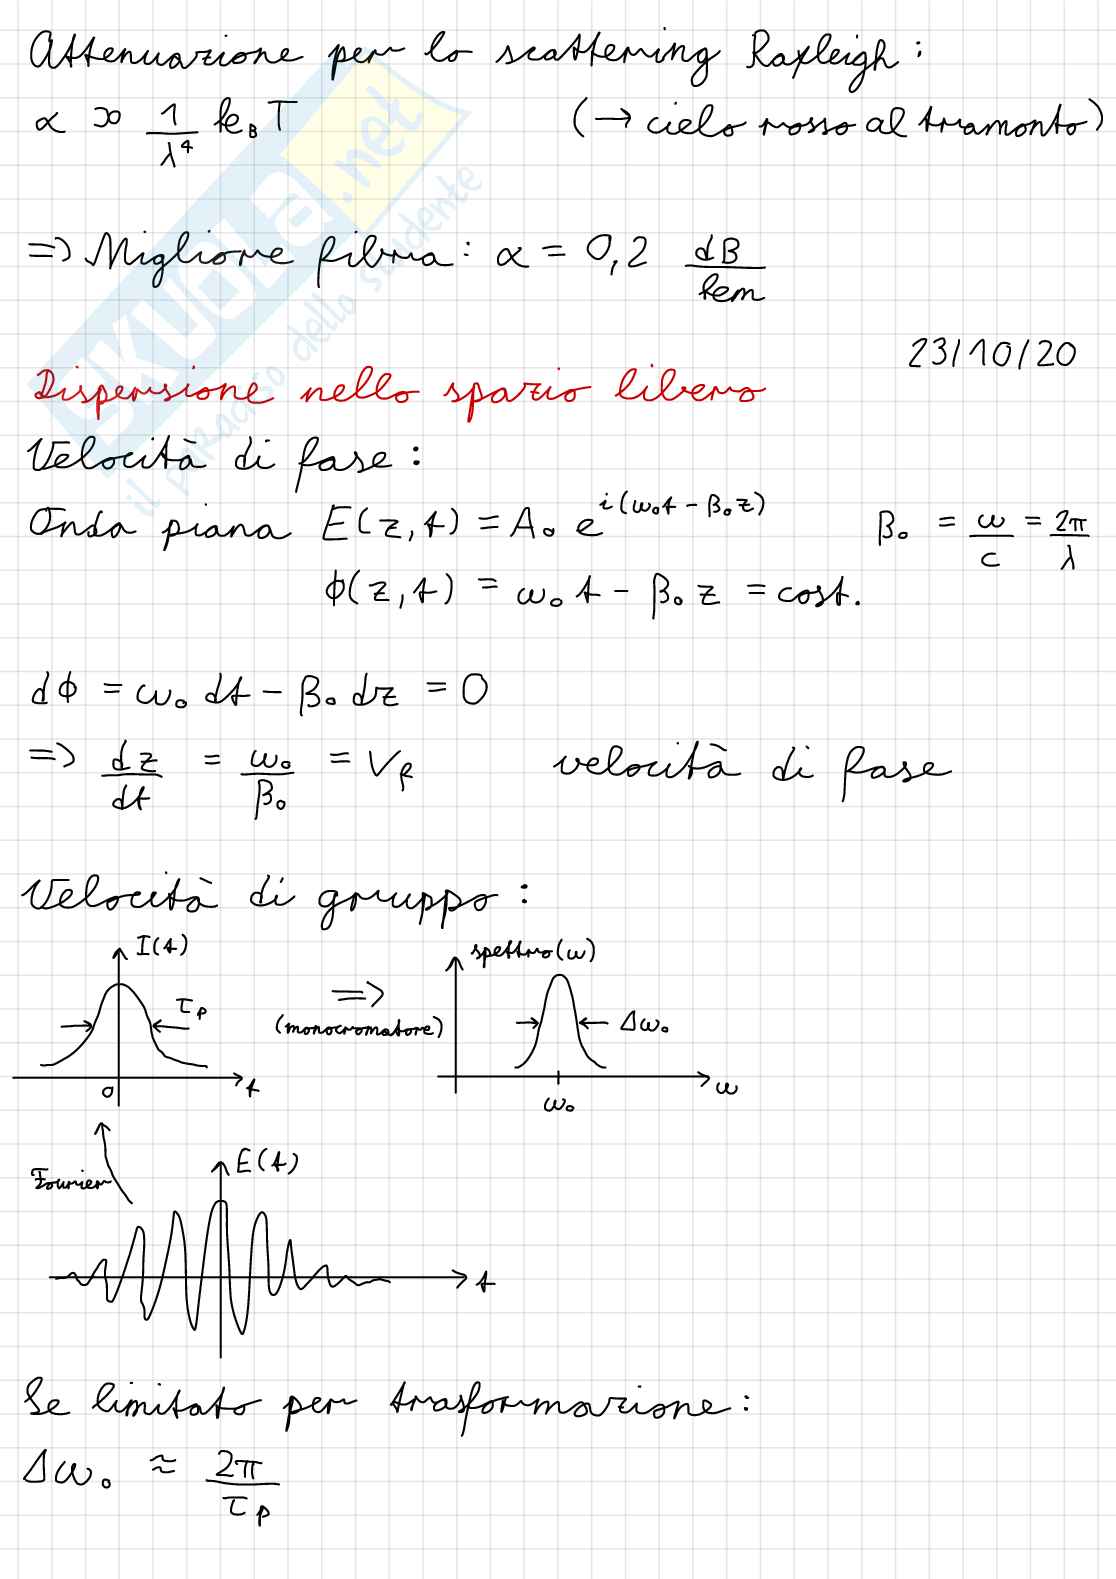 Attenuazione per lo scattering Rayleigh:
α ∝ 1/λ⁴ k_B T (→ cielo rosso al tramonto)
=> Migliore fibra: α = 0,2 dB/km
23/10/20
Dispersione nello spazio libero
Velocità di fase:
Onda piana E(z,t) = A₀ e^{i(ω₀t - β₀z)} β₀ = ω/c = 2π/λ
ϕ(z,t) = ω₀ t - β₀ z = cost.
dϕ = ω₀ dt - β₀ dz = 0
=> dz/dt = ω₀/β₀ = V_f velocità di fase
Velocità di gruppo:
I(t)
τ_p
0
t
=>
(monocromatore)
spettro(ω)
Δω₀
ω₀
ω
Fourier
E(t)
t
Se limitato per trasformazione:
Δω₀ ≈ 2π/τ_p
SKUOLA.net
il paradiso dello studente